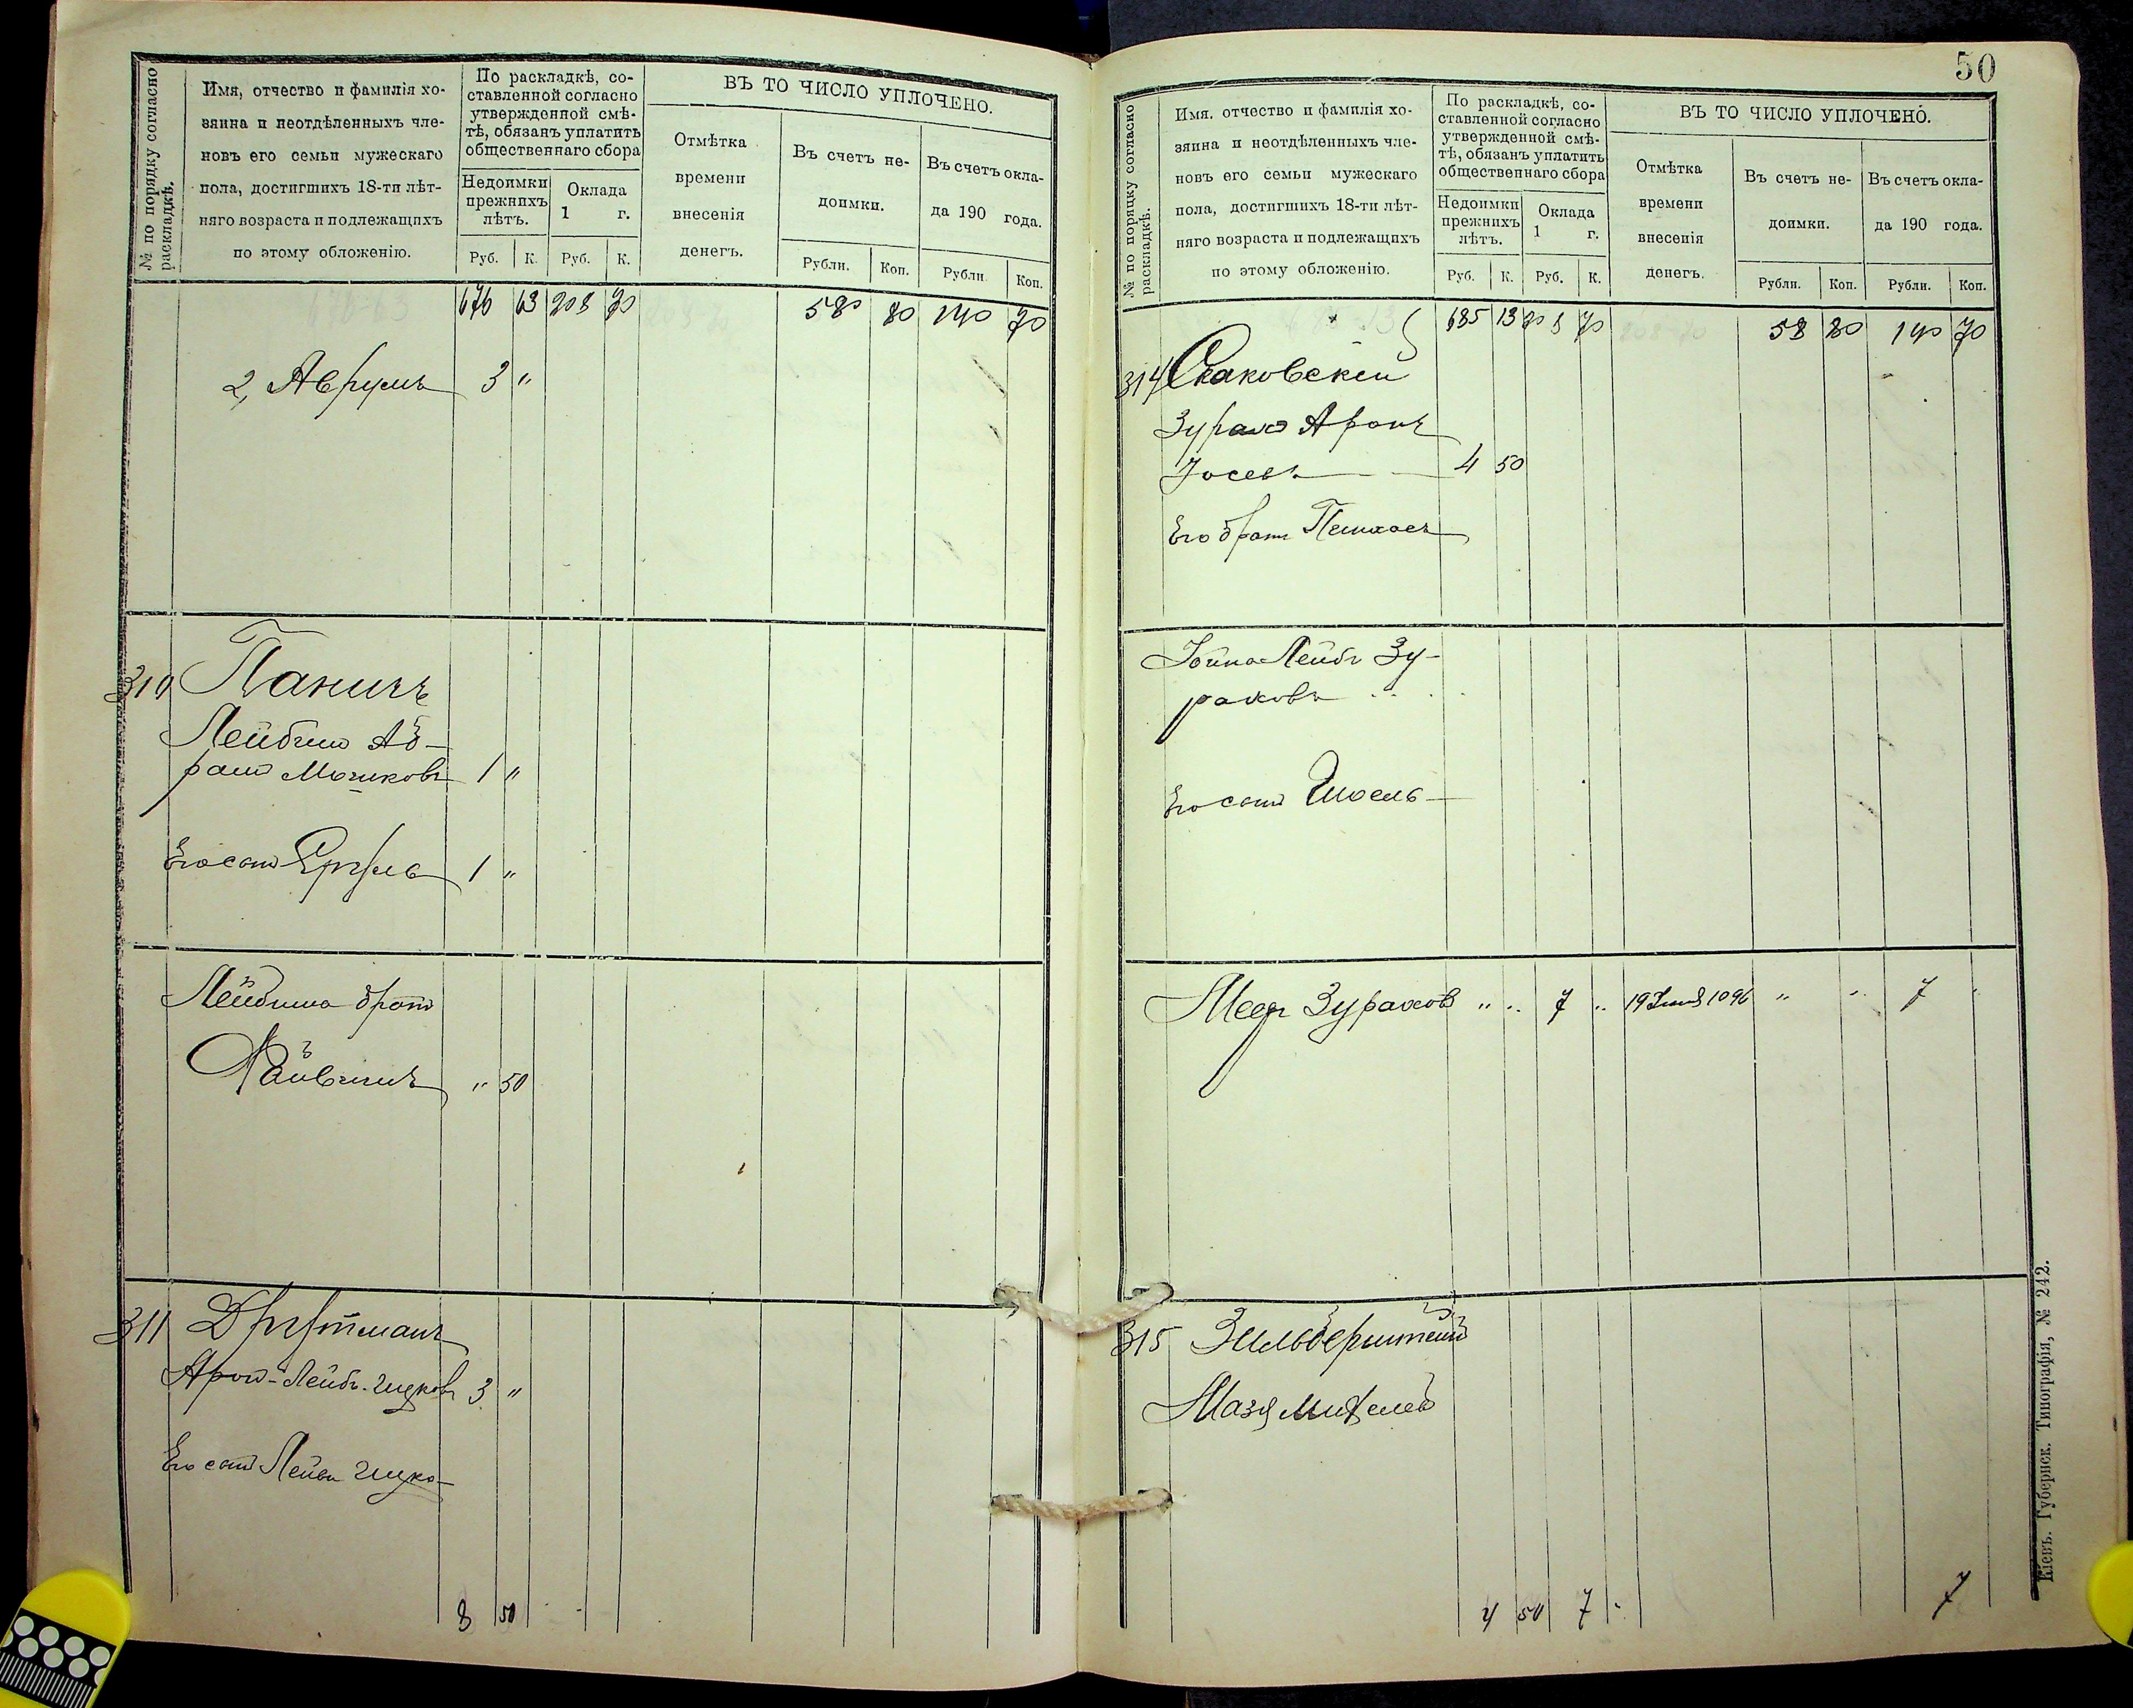 № по порядку согласно раскладкѣ.
Имя, отчество и фамилія хо-
зяина и неотдѣленныхъ чле-
новъ его семьи мужескаго
пола, достигшихъ 18-ти лѣт-
няго возраста и подлежащихъ
по этому обложенію.
По раскладкѣ, со-
ставленной согласно
утвержденной смѣ-
тѣ, обязанъ уплатить
общественнаго сбора
Недоимки
прежнихъ
лѣтъ.
Оклада
1 г.
Руб. К. Руб. К.
ВЪ ТО ЧИСЛО УПЛОЧЕНО.
Отмѣтка
времени
внесенія
денегъ.
Въ счетъ не-
доимки.
Въ счетъ окла-
да 190 года.
Рубли. Коп. Рубли Коп.
676 63 208 70 58 80 140 70
2, Аврумъ 3 "
310 Паничъ
Лейбишъ Аб-
рамъ Мошковъ 1 "
Его сынъ 1 "
Лейбиша братъ
" 50
311
Аронъ-Лейбъ Ицковъ 3 "
Его сынъ Лейба Ицко-
8 50
50
№ по порядку согласно раскладкѣ.
Имя. отчество и фамилія хо-
зяина и неотдѣленныхъ чле-
новъ его семьи мужескаго
пола, достигшихъ 18-ти лѣт-
няго возраста и подлежащихъ
по этому обложенію.
По раскладкѣ, со-
ставленной согласно
утвержденной смѣ-
тѣ, обязанъ уплатить
общественнаго сбора
Недоимки
прежнихъ
лѣтъ.
Оклада
1 г.
Руб. К. Руб. К.
ВЪ ТО ЧИСЛО УПЛОЧЕНО.
Отмѣтка
времени
внесенія
денегъ.
Въ счетъ не-
доимки.
Въ счетъ окла-
да 190 года.
Рубли. Коп. Рубли. Коп.
685 13 208 70 58 80 140 70
314 Скаковскій
Зурахъ Аронъ
Іосевъ 4 50
Его братъ Пинхасъ
Іойна Лейбъ Зу-
раховъ
Его сынъ Іосель
Меер Зурахов " " 7 " 19 " " 7
315 Зильберштейнъ
4 50 7 7
Кіевъ. Губернск. Типографія, № 242.